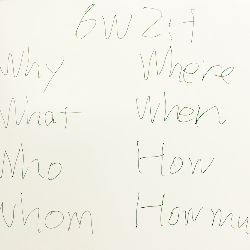 6W2H
Why Where
What When
Who How
Whom How mu